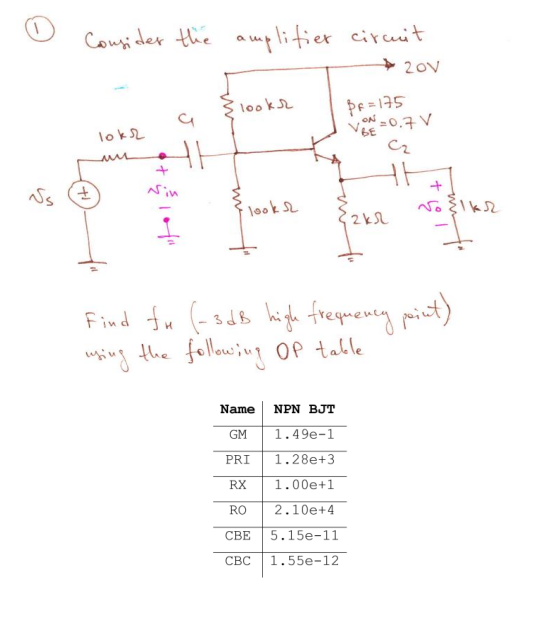 1
Consider the amplifier circuit
20V
100kΩ
βF=175
V ON BE =0.7V
C1
C2
10kΩ
+
vin
-
vs
+
-
100kΩ
2kΩ
+
vo
-
1kΩ
Find fH (-3dB high frequency point)
using the following OP table
Name NPN BJT
GM 1.49e-1
PRI 1.28e+3
RX 1.00e+1
RO 2.10e+4
CBE 5.15e-11
CBC 1.55e-12